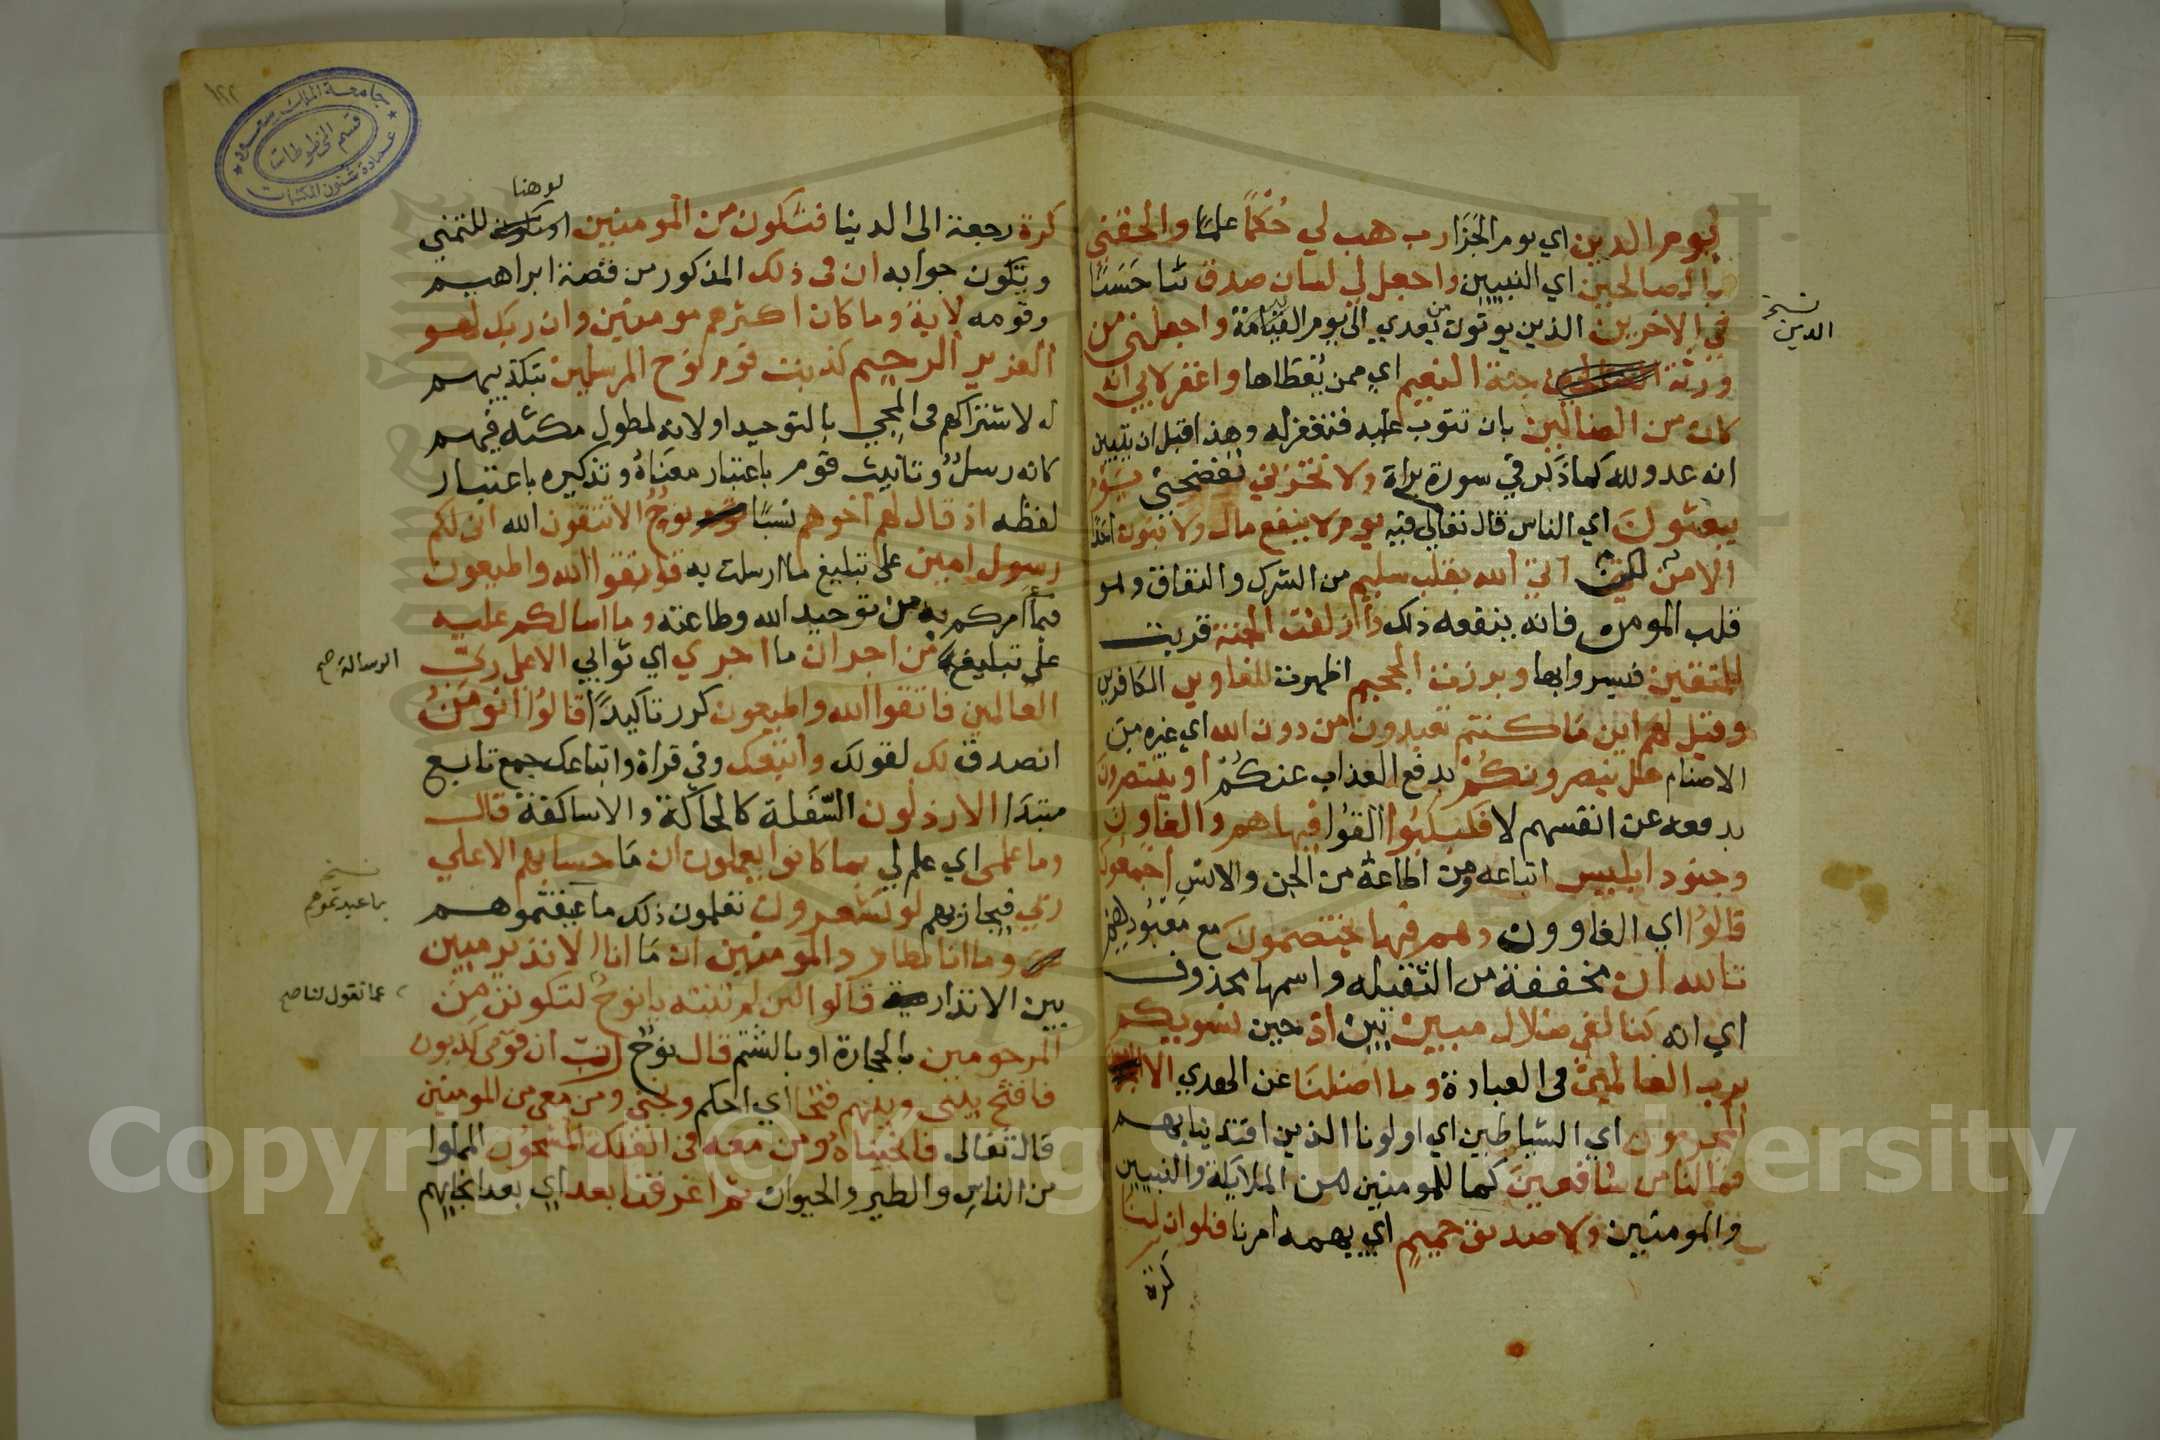 يوم الدين اي يوم الجزا رب هب لي حُكمًا علمًا والحقني
بالصالحين اي النبيين واجعل لي لسان صدق ثنا حَسَنًا
في الاخرين الذين ياتون من بعدي الى يوم القيامة واجعلني من
ورثة جنة النعيم اي ممن يُعطاها واغفر لابي انه
كان من الضالين بان تتوب عليه فتغفر له وهذا قبل ان يتبين
انه عدو لله كما ذكر في سورة براة ولا تخزني تفضحني يوم
يبعثون اي الناس قال تعالى فيه يوم لا ينفع مال ولا بنون احدًا
الا من لكن اتى الله بقلب سليم من الشرك والنفاق وهو
قلب المومن فانه ينفعه ذلك وازلفت الجنة قربت
للمتقين فيروابها وبرزت الجحيم اظهرت للغاوين الكافرين
وقيل لهم اين ما كنتم تعبدون من دون الله اي غيره من
الاصنام هل ينصرونكم بدفع العذاب عنكُمْ او ينتصرون
بدفعه عن انفسهم لا فكبكبُوا القُوا فيها هم والغاون
وجنود ابليس اتباعه ومن اطاعه من الجن والانس اجمعون
قالوا اي الغاوون وهم فيها يختصمون مع معبُوديهم
تالله ان مخففة من الثقيله واسمها محذوف
اي انه كنا لفي ضلال مبين بين اذ حين نسويكم
برب العالمين في العبادة وما اضلنا عن الهدي الا
المجرمون اي الشياطين اي اولونا الذين اقتدينا بهم
فما لنا من شافعين كما للمومنين من الملايكة والنبيين
والمومنين ولا صديق حميم اي يهمه امرنا فلو ان لنا
كرة
نسخة
الدين
١٢٢
جامعة الملك سعود
قسم المخطوطات
عمادة شئون المكتبات
لو هنا
كرة رجعة الى الدنيا فنكون من المومنين للتمني
ونكون جوابه ان في ذلك المذكور من قصة ابراهيم
وقومه لاية وما كان اكثرهم مومنين وان ربك لهو
العزيز الرحيم كذبت قوم نوح المرسلين بتكذيبهم
له لاشتراكهم في المجي بالتوحيد او لانه لطول مكثه فيهم
كانه رسلٌ وتانيث قوم باعتبار معناهُ وتذكيره باعتبار
لفظه اذ قال لهم اخوهم نسبًا نوحٌ الا تتقون الله اني لكم
رسول امين على تبليغ ما ارسلت به فاتقوا الله واطيعون
فيما امركم به من توحيد الله وطاعته وما اسالكم عليه
على تبليغه من اجر ان ما اجري اي ثوابي الا على ربّ
العالمين فاتقوا الله واطيعون كرر تاكيدًا قالوُا انومن
انصدق لك لقولك واتبعك وفي قراة واتباعك جمع تابع
مبتدا الارذلون السّفلة كالحاكة والاساكفة قال
وما علمي اي علم لي بما كانوا يعملون ان ما حسابهم الا على
ربي فيجازيهم لو تشعرون تعلمون ذلك ما عبتموهم
وما انا بطارد المومنين ان ما انا الا نذير مبين
بين الانذار قالوا لين لم تنته يا نوحُ لتكونن من
المرجومين بالحجارة او بالشتم قال نوحٌ رب ان قومي كذبون
فافتح بيني وبينهم فتحا اي احكم ونجني ومن معي من المومنين
قال تعالى فانجيناهُ ومن معه في الفلك المشحون المملوا
من الناس والطير والحيوان ثم اغرقنا بعد اي بعد انجايهم
الرسالة صح
نسخة
ما عبدتموهم
عما تقول لنا صح
Copyright © King Saud University